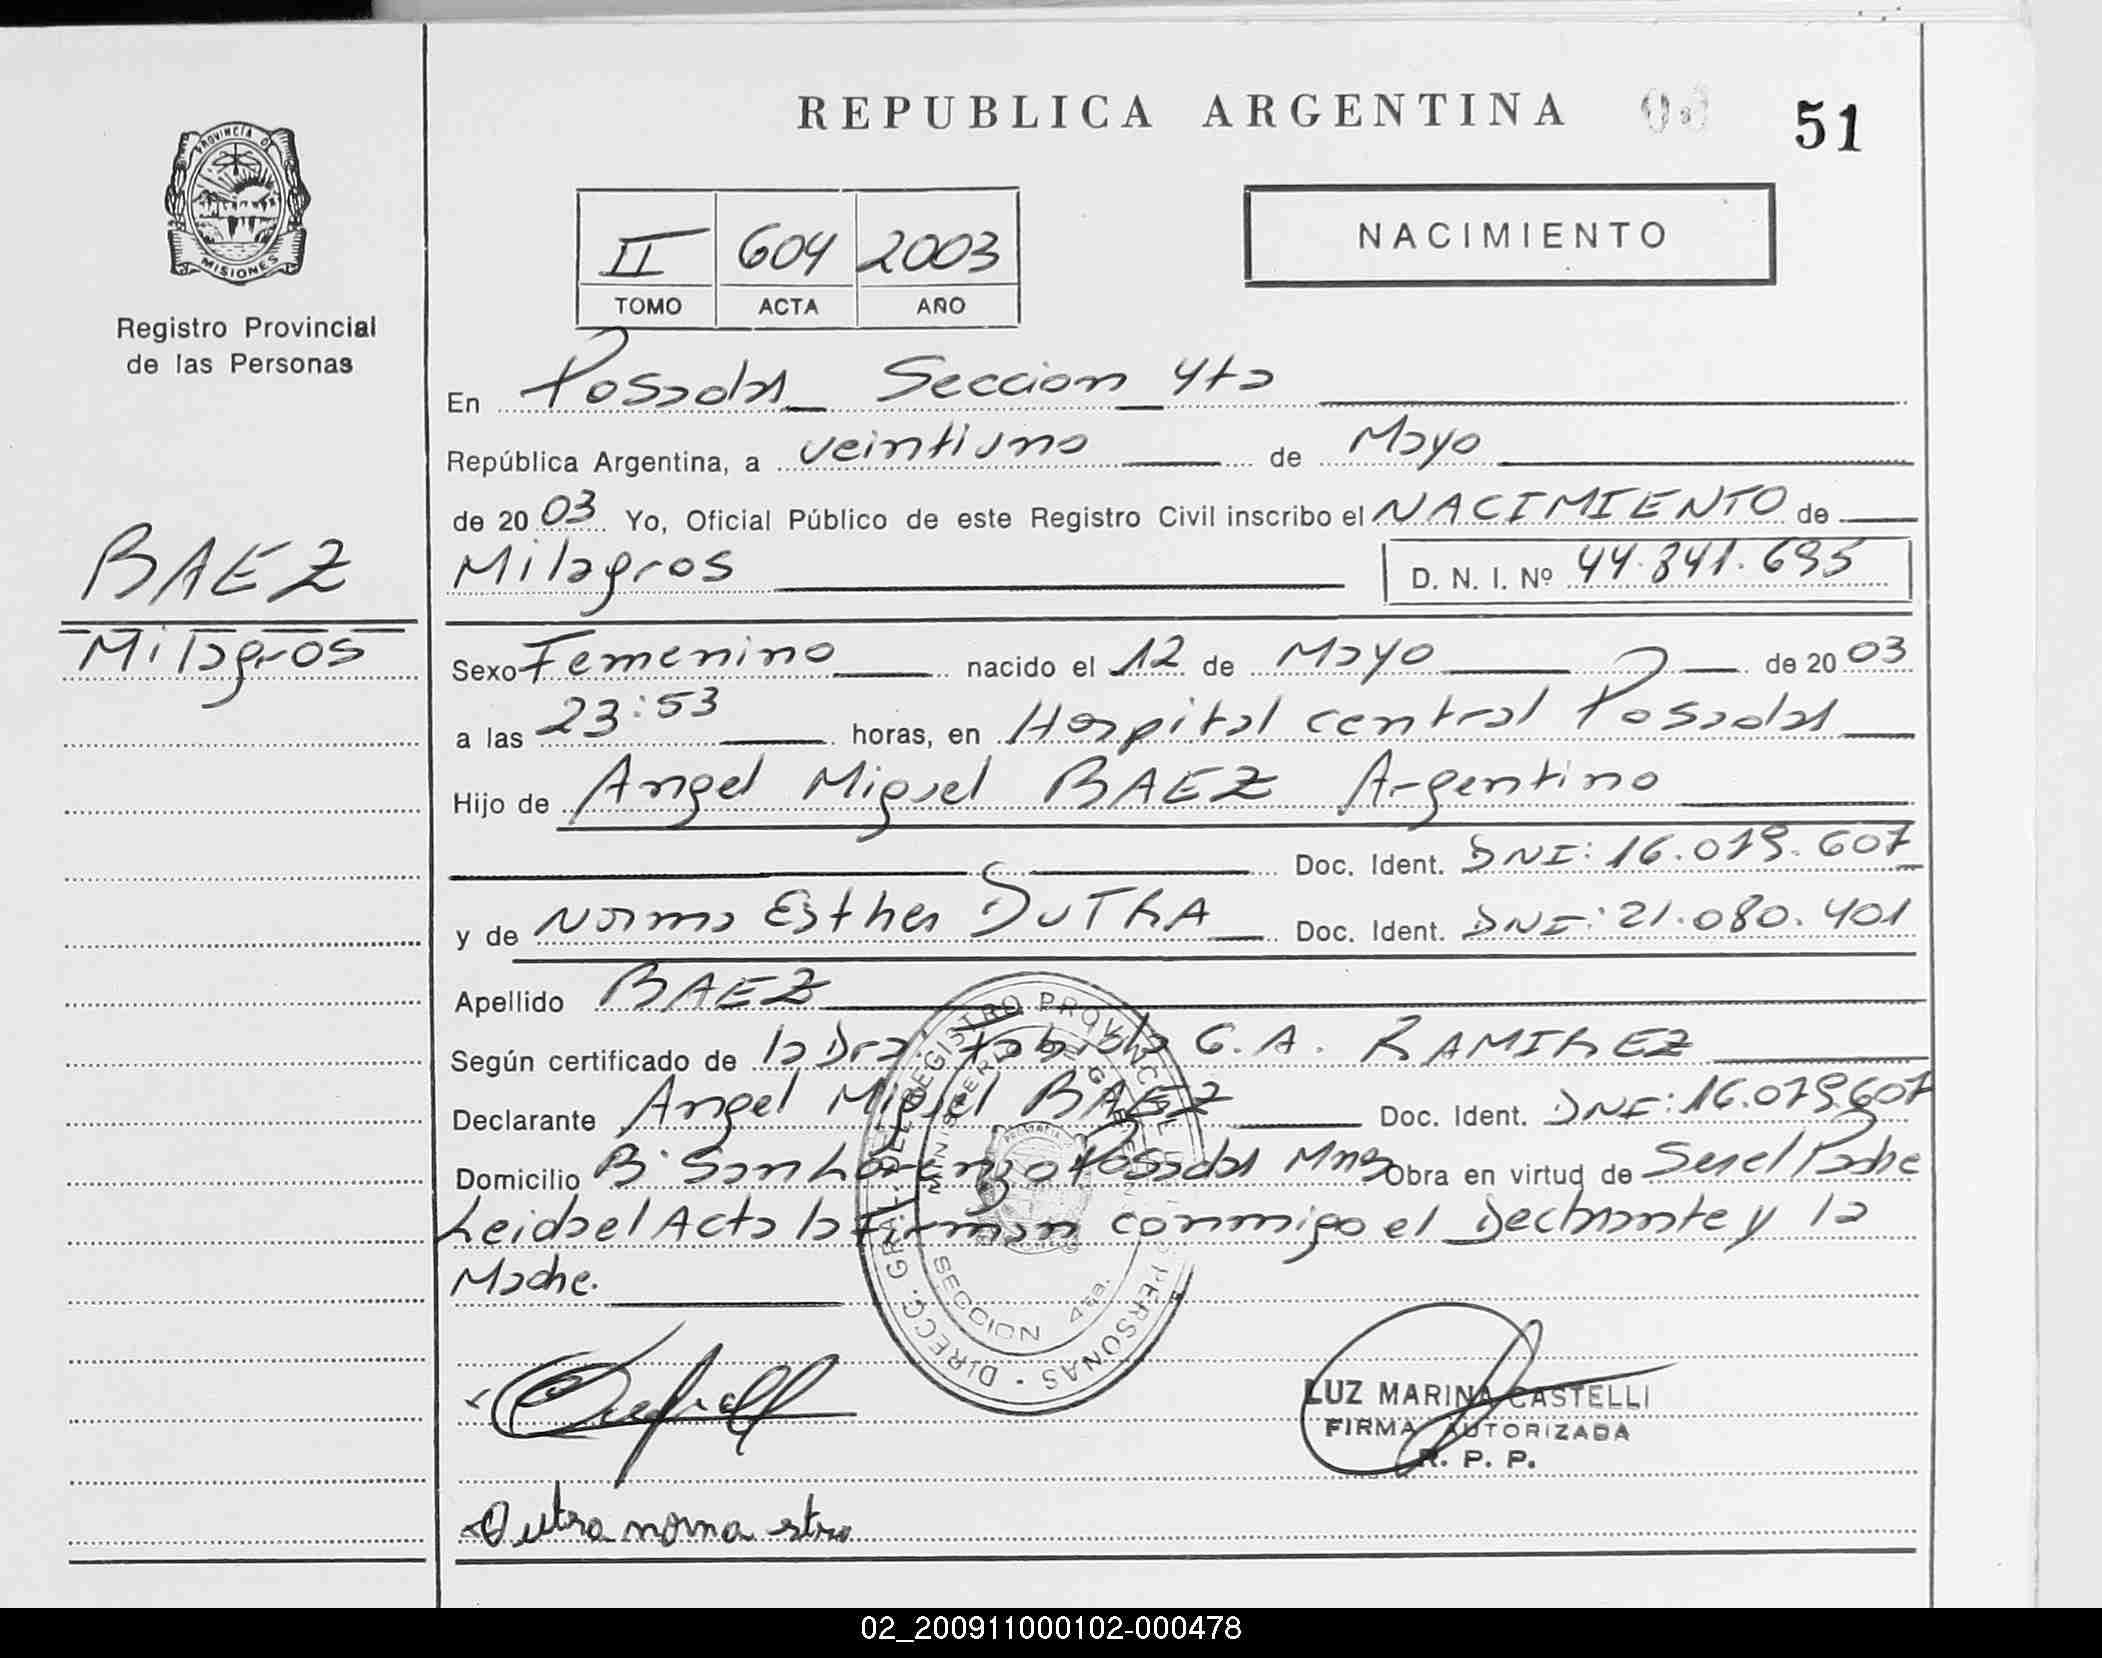 REPUBLICA ARGENTINA
51
PROVINCIA D
MISIONES
Registro Provincial
de las Personas
II 604 2003
TOMO ACTA AÑO
NACIMIENTO
En Posadas Seccion 4ta
República Argentina, a veintiuno de Mayo
de 2003 Yo, Oficial Público de este Registro Civil inscribo el NACIMIENTO de
Milagros D. N. I. Nº 44.841.695
BAEZ
Milagros
Sexo Femenino nacido el 12 de Mayo de 2003
a las 23:53 horas, en Hospital central Posadas
Hijo de Angel Miguel BAEZ Argentino
Doc. Ident. DNI: 16.079.607
y de Norma Esther DUTRA Doc. Ident. DNI: 21.080.401
Apellido BAEZ
Según certificado de la Dra. Fabiola G. A. RAMIREZ
Declarante Angel Miguel BAEZ Doc. Ident. DNI: 16.079.607
Domicilio B° San Lorenzo Posadas Mnes Obra en virtud de Ser el Padre
Leida el Acta la firman conmigo el Declarante y la
Madre.
DIRECC. GRAL. DEL REGISTRO PROVINCIAL DE LAS PERSONAS
SECCION 4ta.
LUZ MARINA CASTELLI
FIRMA AUTORIZADA
R. P. P.
Dutra norma
02_200911000102-000478